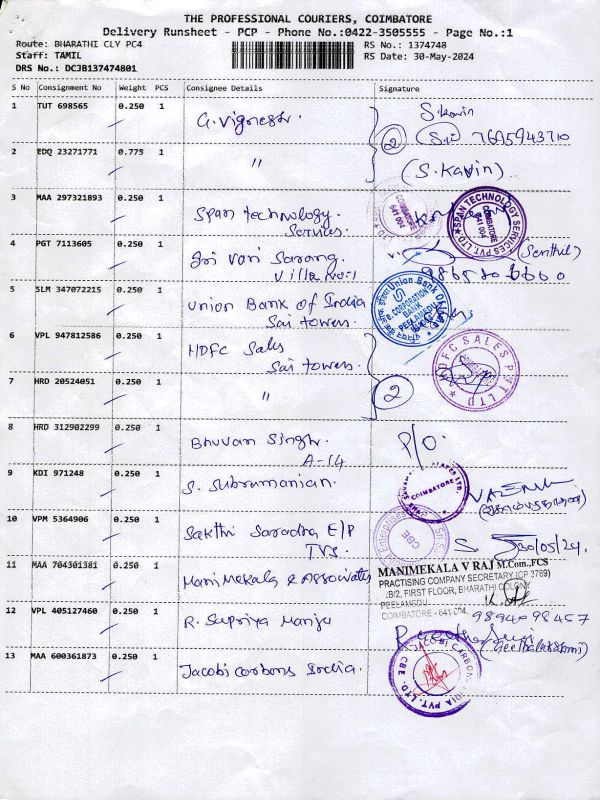 THE PROFESSIONAL COURIERS, COIMBATORE
Delivery Runsheet - PCP - Phone No.:0422-3505555 - Page No.:1
Route: BHARATHI CLY PC4
RS No.: 1374748
Staff: TAMIL
RS Date: 30-May-2024
DRS No.: DCJB137474801
S No Consignment No Weight PCS Consignee Details Signature
1 TUT 698565 0.250 1 G. Vignesh. S.Kavin
2 (Sri) 7695943710
2 EDQ 23271771 0.775 1 " (S.Kavin)
3 MAA 297321893 0.250 1 Span technology. Services.
SPAN TECHNOLOGY SERVICES PVT LTD COIMBATORE 641 004
4 PGT 7113605 0.250 1 Sri Vari Sarang. Villa No:1 (Senthil)
5 SLM 347072215 0.250 1 Union Bank of India Sai towers.
Union Bank Of India
6 VPL 947812586 0.250 1 HDFC Sales Sai towers.
HDFC SALES PVT LTD
7 HRD 20524051 0.250 1 " 2
8 HRD 312902299 0.250 1 Bhuvan Singh. A-14 P/O.
9 KDI 971248 0.250 1 S. Subramanian.
COIMBATORE
10 VPM 5364906 0.250 1 Sakthi Saradha E/P TVS S. 30/05/24.
CBE
11 MAA 704301381 0.250 1 Manimekala & Associates
MANIMEKALA V RAJ M.Com.,FCS
PRACTISING COMPANY SECRETARY (CP 3789)
FIRST FLOOR, BHARATHI COLONY
PEELAMEDU
COIMBATORE - 641 004.
12 VPL 405127460 0.250 1 R. Supriya Manju 9894098457
(Geethalakshmi)
13 MAA 600361873 0.250 1 Jacobi Carbons India.
JACOBI CARBONS INDIA PVT. LTD. CBE